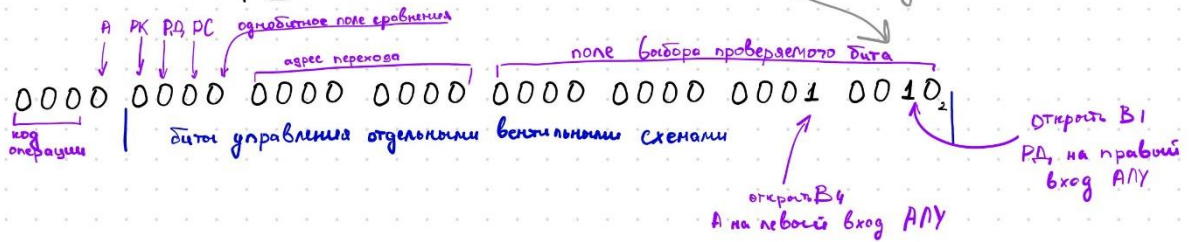 А РК РД РС однобитное поле сравнения
адрес перехода поле выбора проверяемого бита
0000 0000 0000 0000 0000 0000 0001 0010₂
код операции
биты управления отдельными вентильными схемами
открыть В4
А на левый вход АЛУ
открыть В1
РД на правый
вход АЛУ